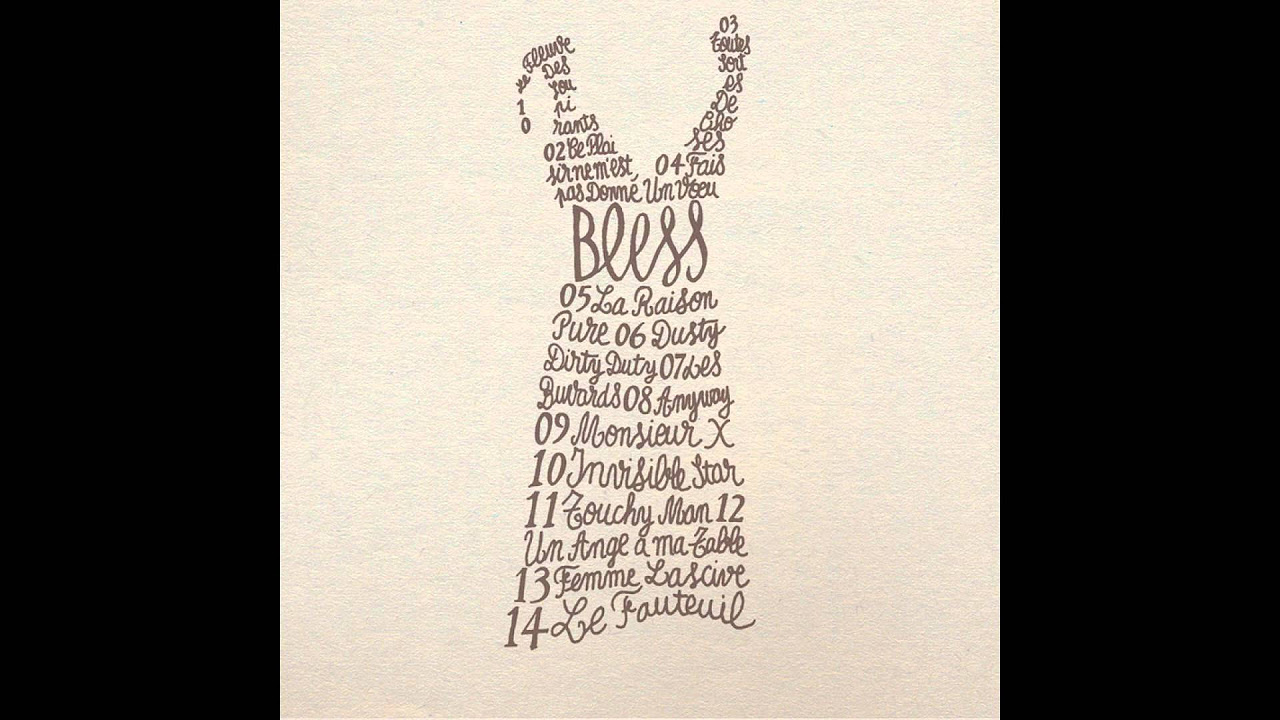 10 Le Fleuve
Des
Sou
pi
rants
02 Ce Plai
sir ne m'est,
pas Donné
03
Toutes
Sort
es
De
Cho
ses
04 Fais
Un Vœu
Bless
05 La Raison
Pure 06 Dusty
Dirty Duty 07 Les
Buvards 08 Anyway
09 Monsieur X
10 Invisible Star
11 Touchy Man 12
Un Ange à ma Table
13 Femme Lascive
14 Le Fauteuil